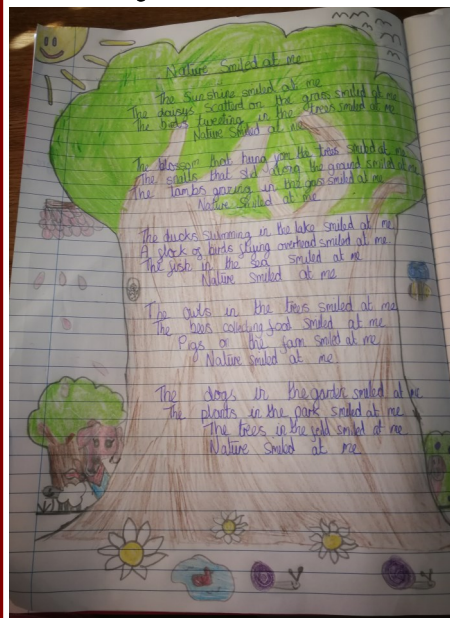 Nature Smiled at me
The Sunshine smiled at me
The daisys scatterd on the grass smiled at me
The birds tweeting in the trees smiled at me
Nature smiled at me
The blossom that hung from the trees smiled at me
The snails that slid along the ground smiled at me
The lambs grazing in the grass smiled at me
Nature smiled at me
The ducks swimming in the lake smiled at me
A flock of birds flying overhead smiled at me
The fish in the sea smiled at me
Nature smiled at me
The owls in the trees smiled at me
The bees collecting food smiled at me
Pigs on the farm smiled at me
Nature smiled at me
The dogs in the garden smiled at me
The plants in the park smiled at me
The trees in the wild smiled at me
Nature smiled at me